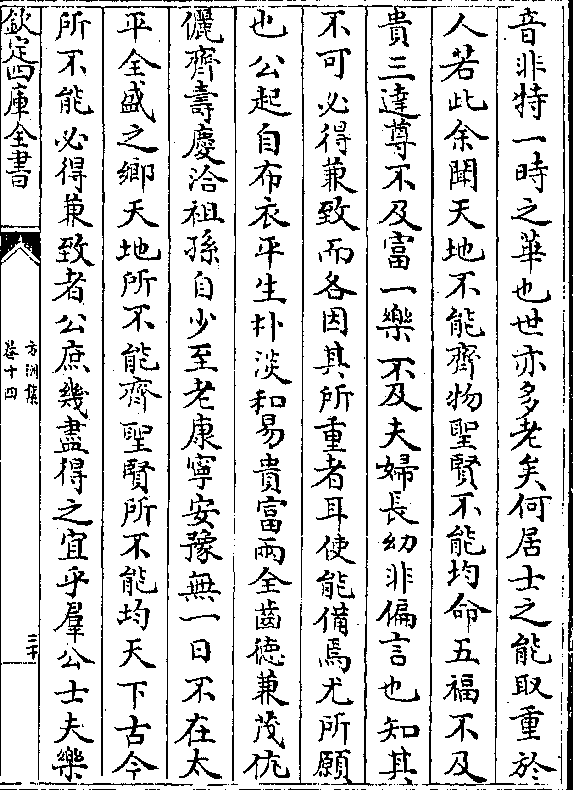 音非特一時之華也世亦多老矣何居士之能取重於
人若此余聞天地不能齊物聖賢不能均命五福不及
貴三達尊不及富一樂不及夫婦長幼非偏言也知其
不可必得兼致而各因其所重者耳使能備焉尤所願
也公起自布衣平生朴淡和易貴富兩全齒德兼茂伉
儷齊壽慶洽祖孫自少至老康寧安豫無一日不在太
平全盛之鄉天地所不能齊聖賢所不能均天下古今
所不能必得兼致者公庶幾盡得之宜乎羣公士夫樂
欽定四庫全書
方洲集
卷十四
三十